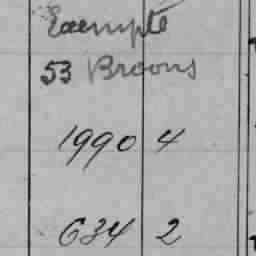 Exempté
53 Broons
1990 4
634 2